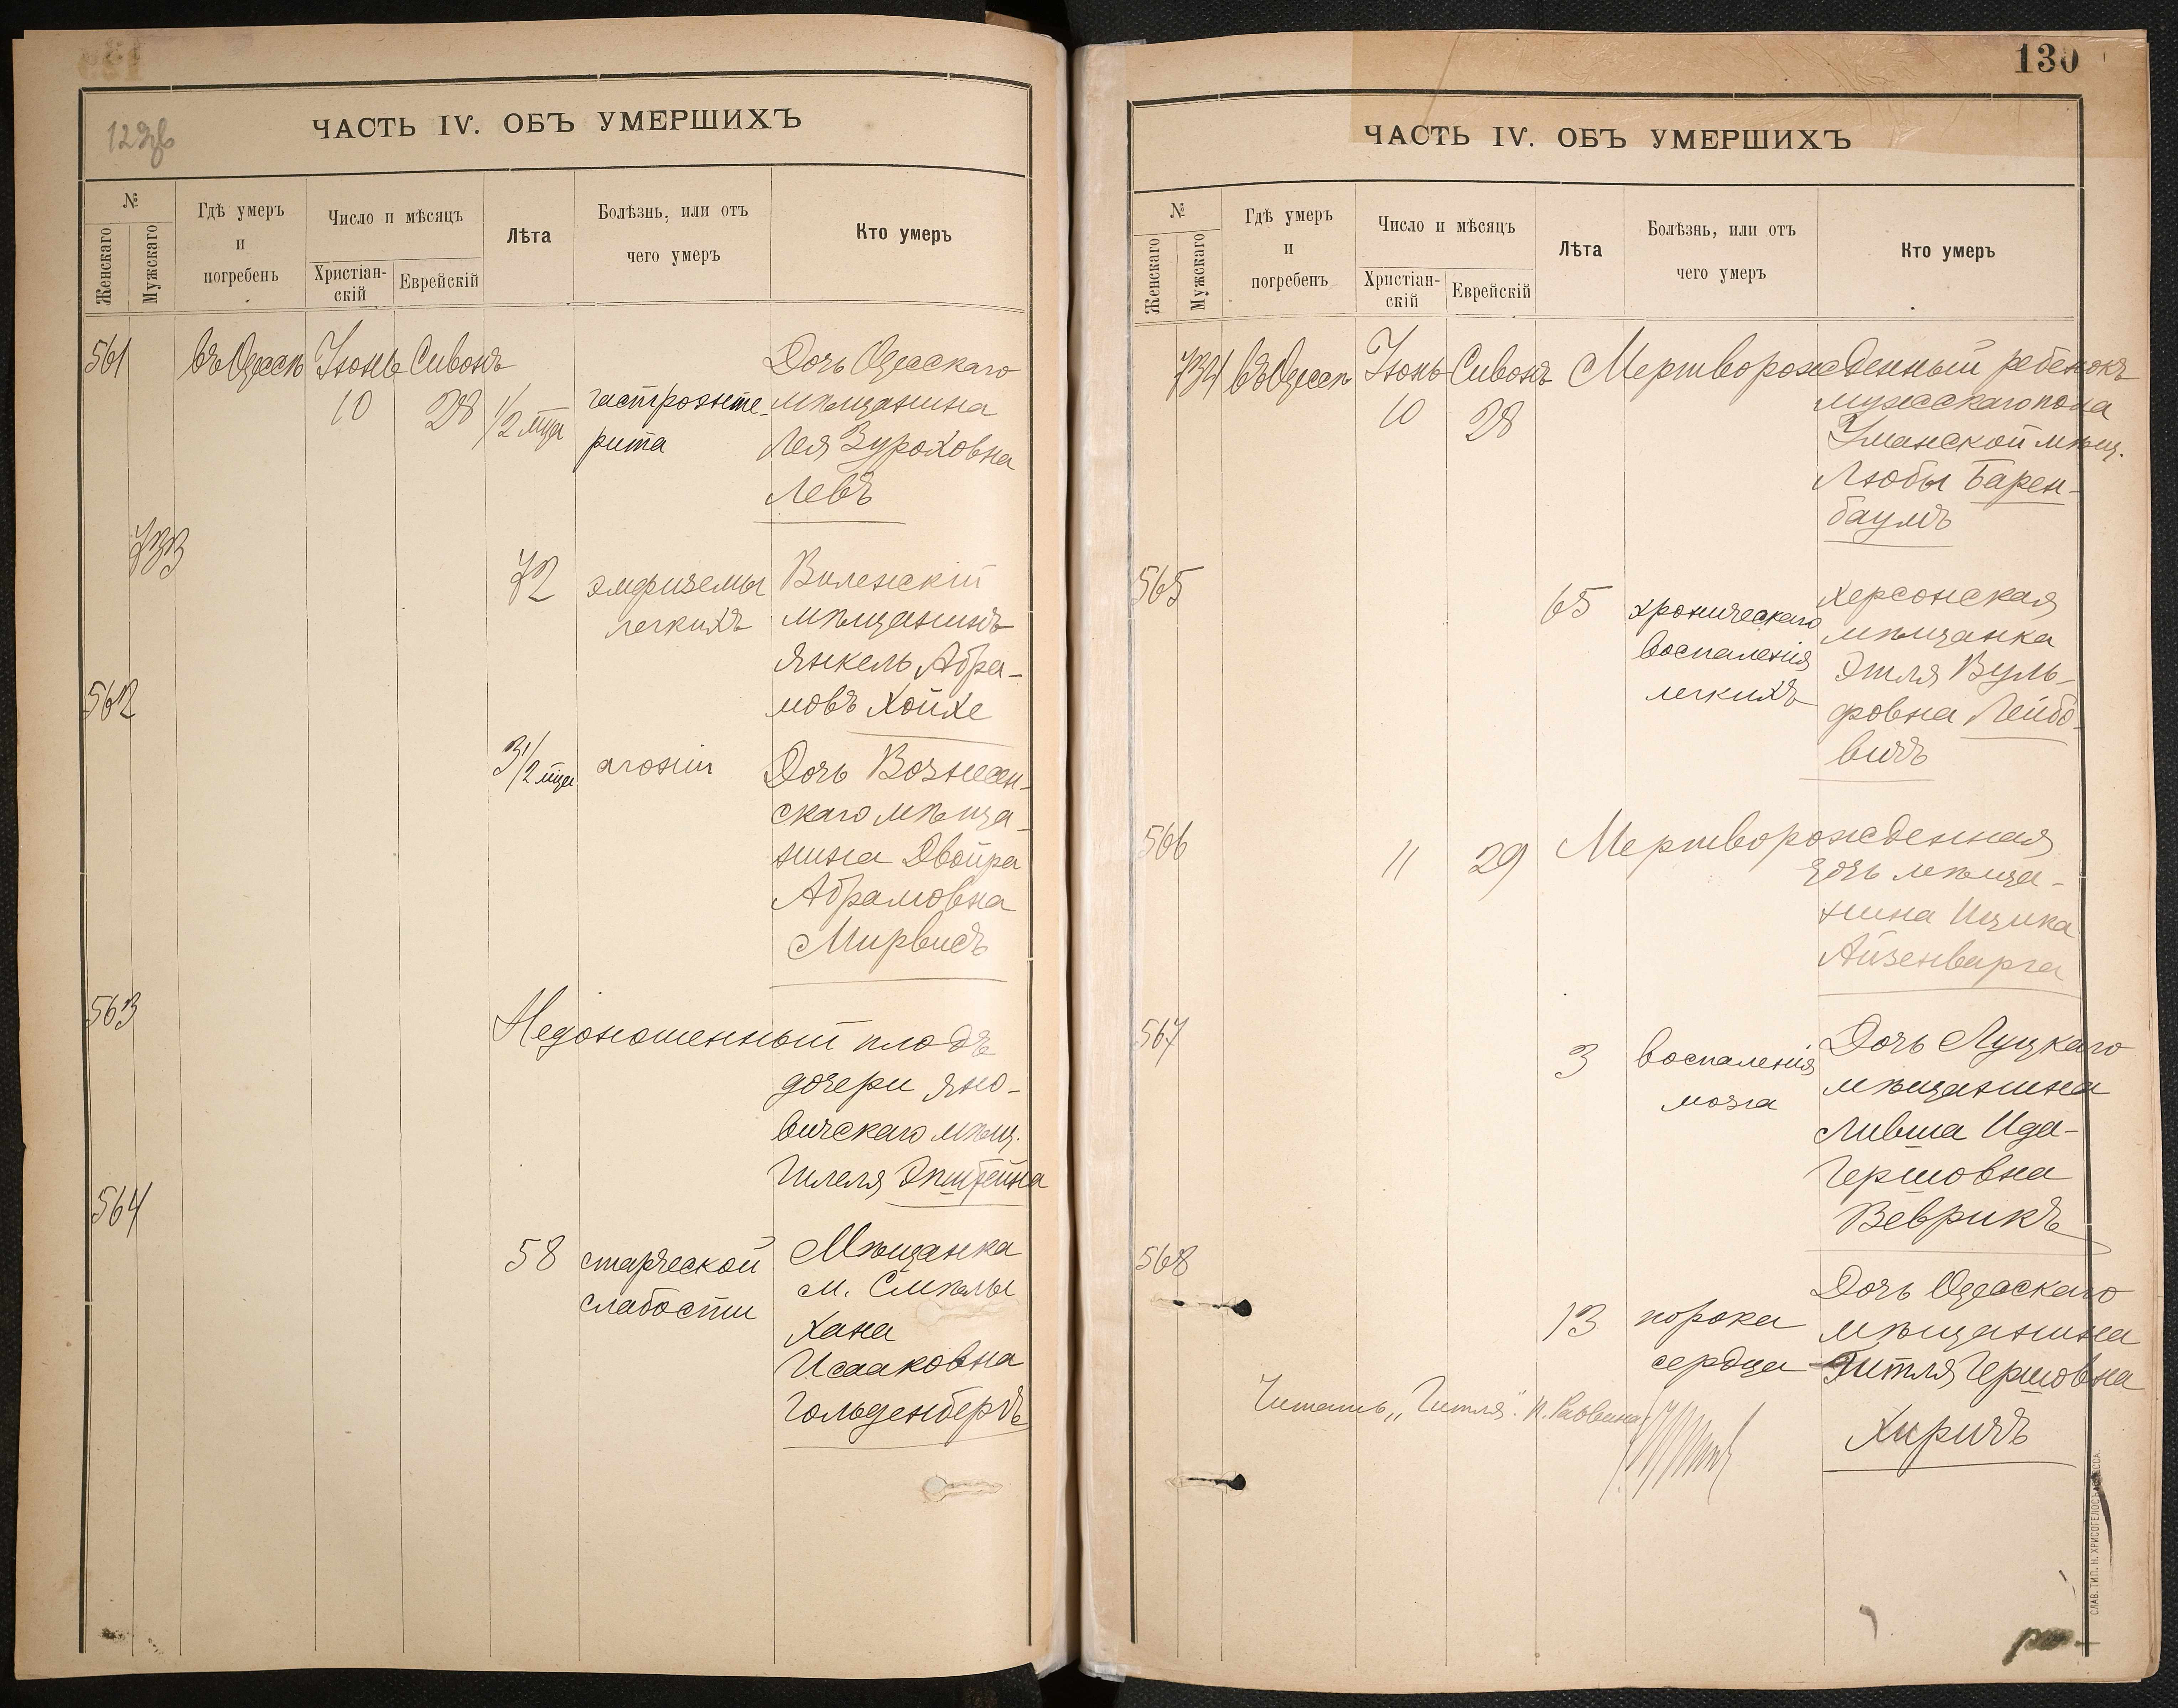 129об
ЧАСТЬ IV. ОБЪ УМЕРШИХЪ
№
Женскаго
Мужскаго
Гдѣ умеръ и погребенъ
Число и мѣсяцъ
Христіан-скій
Еврейскій
Лѣта
Болѣзнь, или отъ чего умеръ
Кто умеръ
561 въ Одессѣ Іюнь Сивонъ Дочь Одесскаго
10 28 1/2 мца гастроэнте- мѣщанина
рита Лея Зуроховна
Левъ
733
72 эмфиземы Виленскій
легкихъ мѣщанинъ
Янкель Абра-
мовъ Хойхе
562
3 1/2 мца агоніи Дочь Вознесен-
скаго мѣща-
нина Двойра
Абрамовна
Мирвисъ
563
Недоношенный плодъ
дочери Яно-
вичскаго мѣщ.
Гилеля Эпштейна
564
58 старческой Мѣщанка
слабости м. Смѣлы
Хана
Исааковна
Гольденбергъ
130
ЧАСТЬ IV. ОБЪ УМЕРШИХЪ
№
Женскаго
Мужскаго
Гдѣ умеръ и погребенъ
Число и мѣсяцъ
Христіан-скій
Еврейскій
Лѣта
Болѣзнь, или отъ чего умеръ
Кто умеръ
734 въ Одессѣ Іюнь Сивонъ Мертворожденный ребенокъ
10 28 мужескаго пола
Уманской мѣщ.
Любы Барен-
баумъ
565
65 хроническаго Херсонская
воспаленія мѣщанка
легкихъ Этля Вуль-
фовна Лейбо-
вичъ
566 11 29 Мертворожденная
дочь мѣща-
нина Ицика
Айзенварга
567
3 воспаленія Дочь Луцкаго
мозга мѣщанина
Ливша Ида-
Гершовна
Веврикъ
568
Дочь Одесскаго
13 порока мѣщанина
сердца Гитля Гершовна
Читать „Гитля". И. Раввина
Хиричъ
СЛАВ. ТИП. Н. ХРИСОГЕЛОСЪ, ОДЕССА.